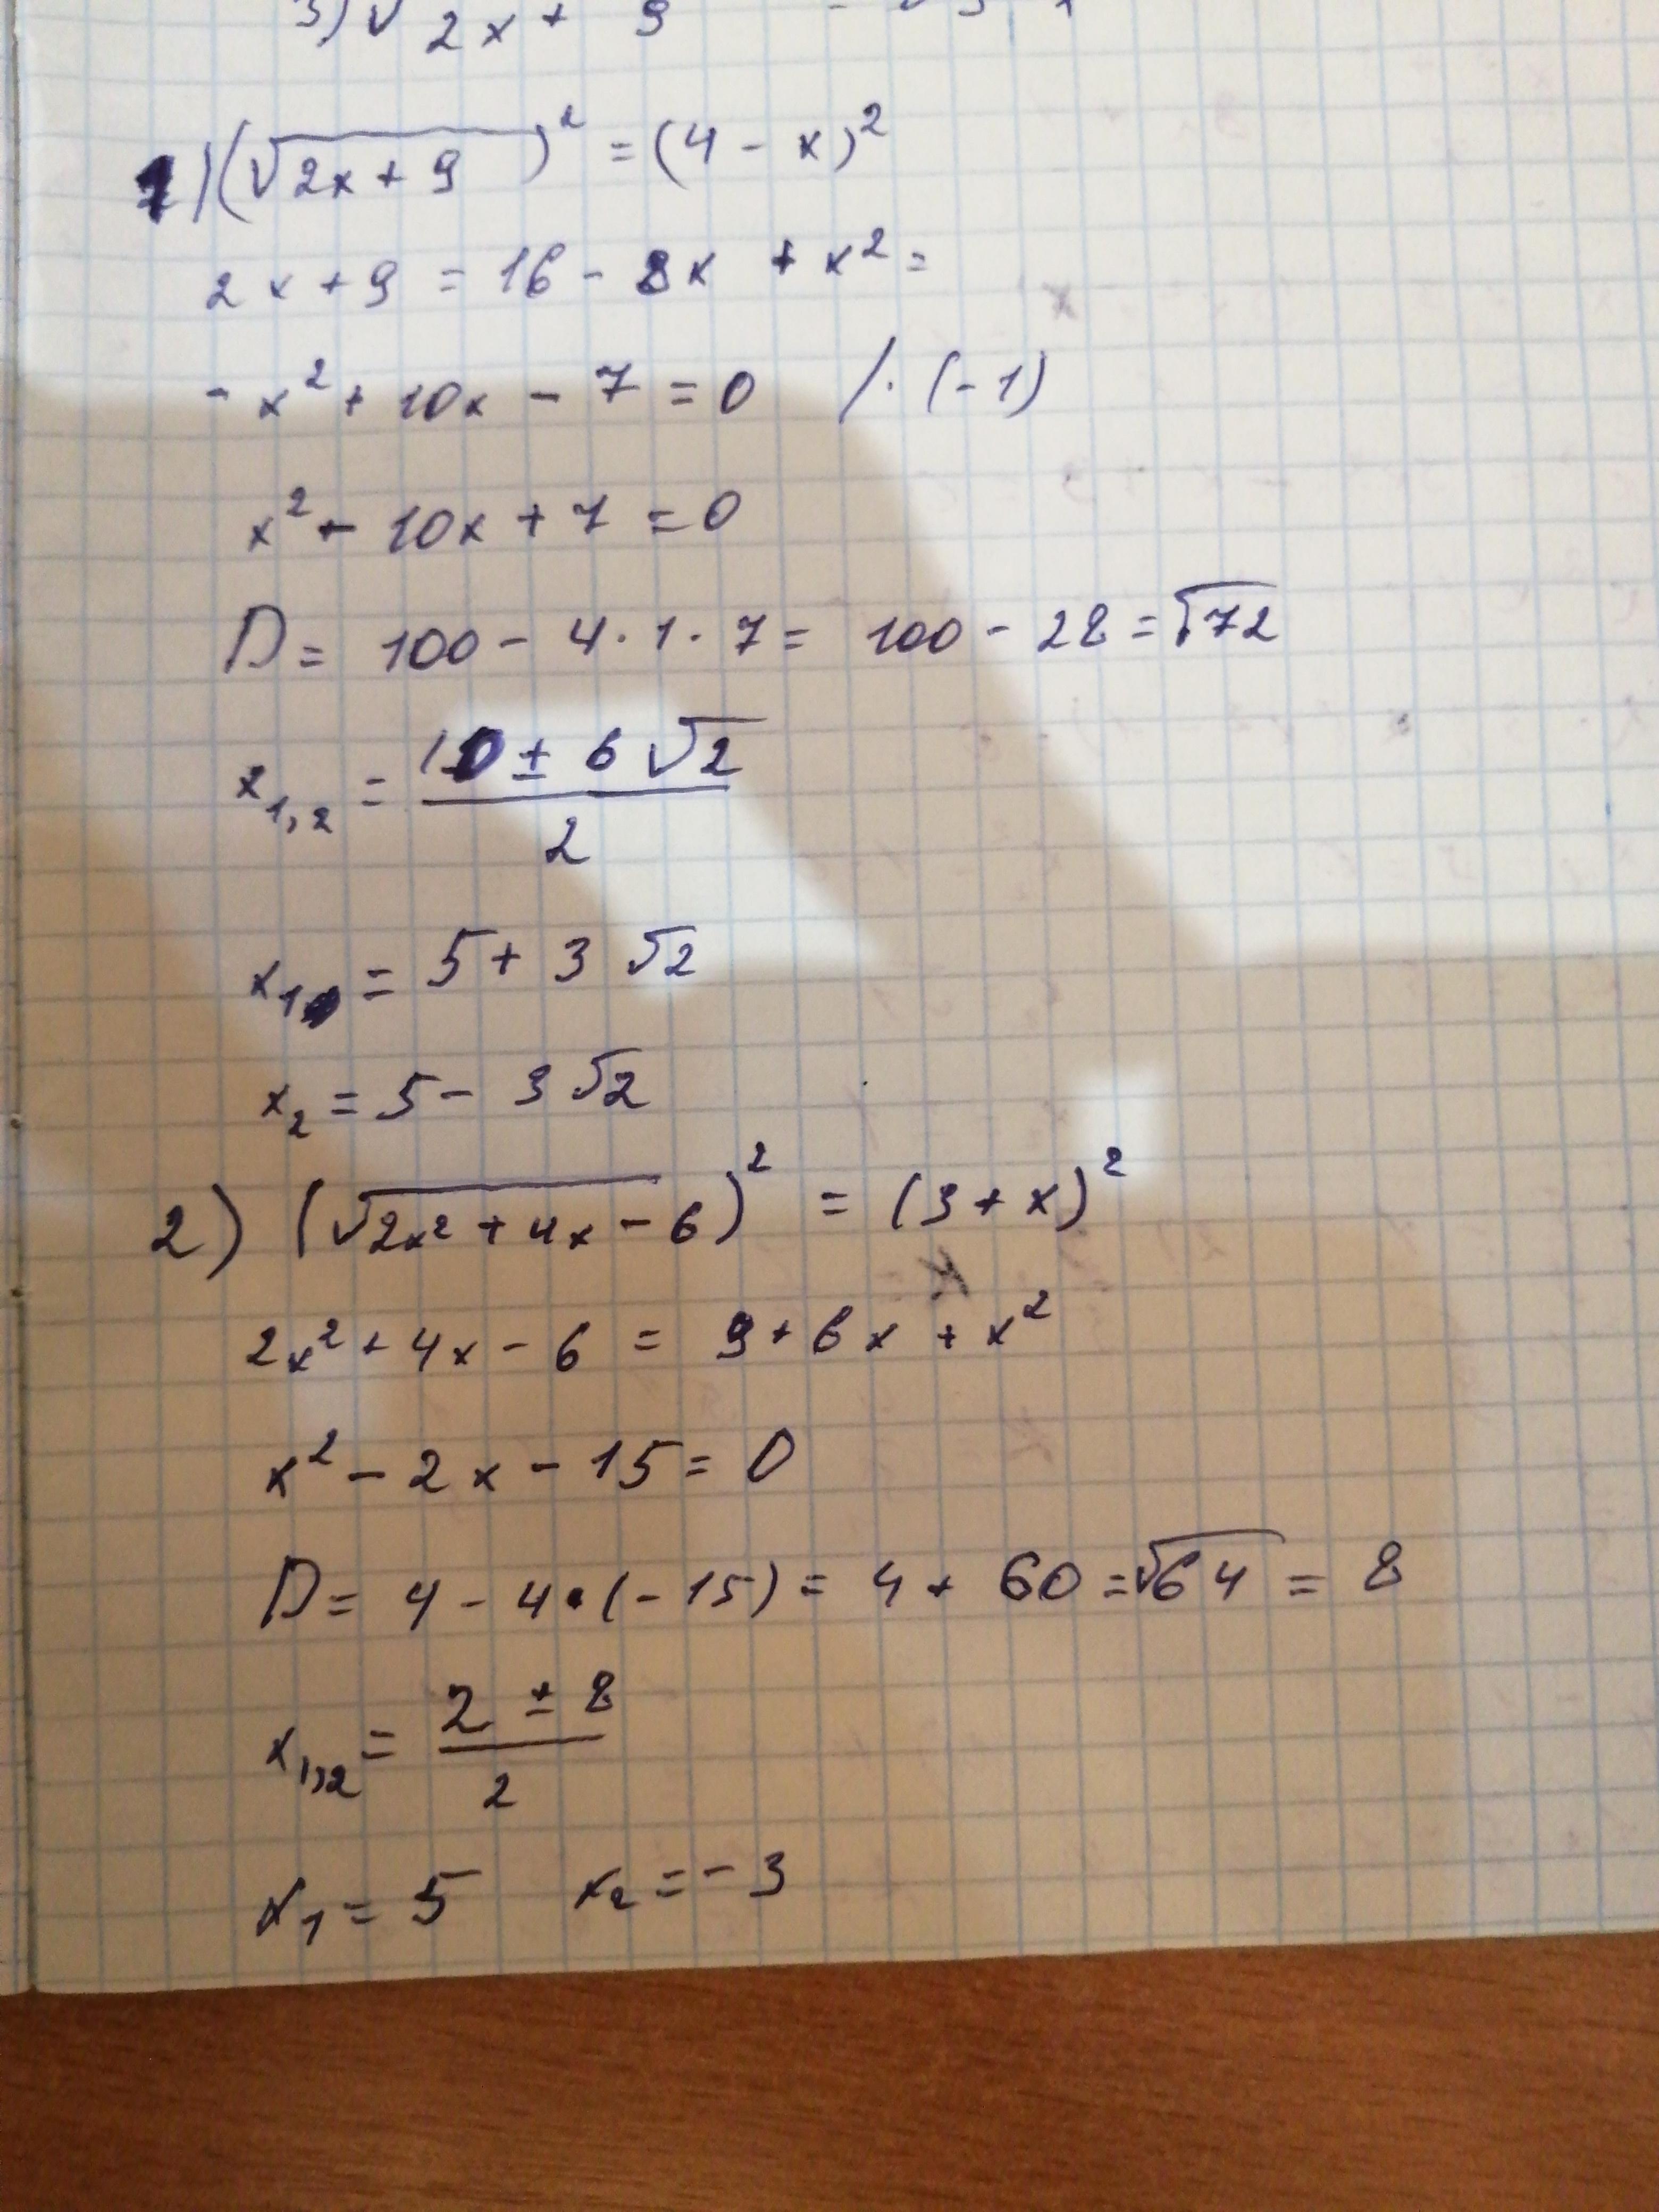 3) √ 2x + 9
1) (√2x + 9)² = (4 - x)²
2x + 9 = 16 - 8x + x² =
- x² + 10x - 7 = 0 / · (-1)
x² - 10x + 7 = 0
D = 100 - 4 · 1 · 7 = 100 - 28 = √72
x₁,₂ = (10 ± 6√2)/2
x₁ = 5 + 3 √2
x₂ = 5 - 3 √2
2) (√2x² + 4x - 6)² = (3 + x)²
2x² + 4x - 6 = 9 + 6x + x²
x² - 2x - 15 = 0
D = 4 - 4 · (-15) = 4 + 60 = √64 = 8
x₁,₂ = (2 ± 8)/2
x₁ = 5 x₂ = - 3